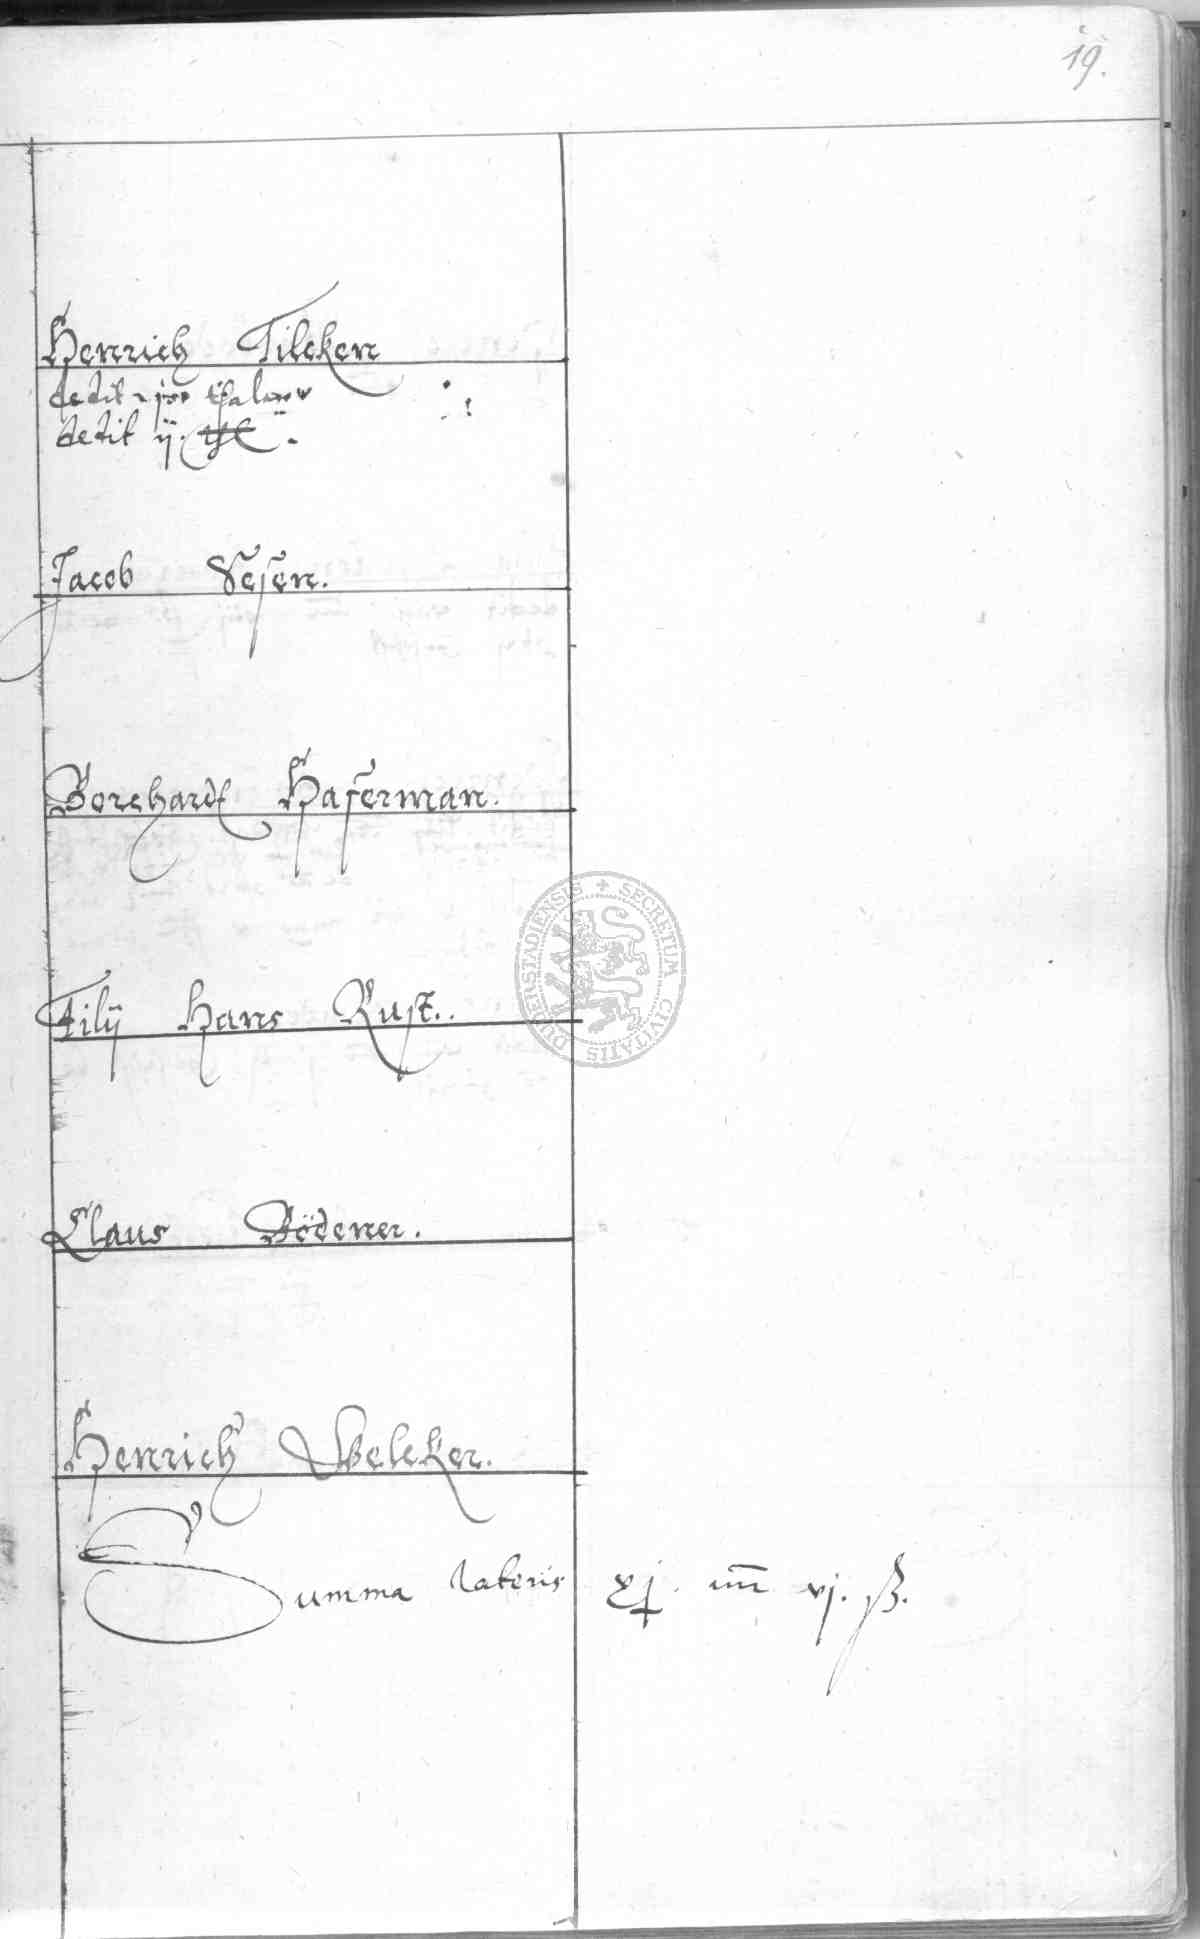 19.
Henrich Tileken
dedit thaler
dedit ij.
Jacob Sesen.
Borchardt Haferman.
Filij Hans Rust..
Claus Bödener.
Henrich Weleker.
Summa lateris xj. m̅ vj. ß.
SECRETUM CIVITATIS DUDERSTADIENSIS